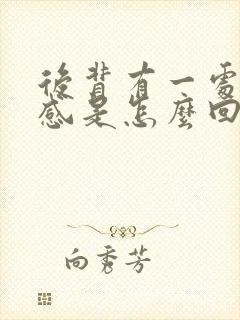 後背有一處
感是怎麼回
向秀芳